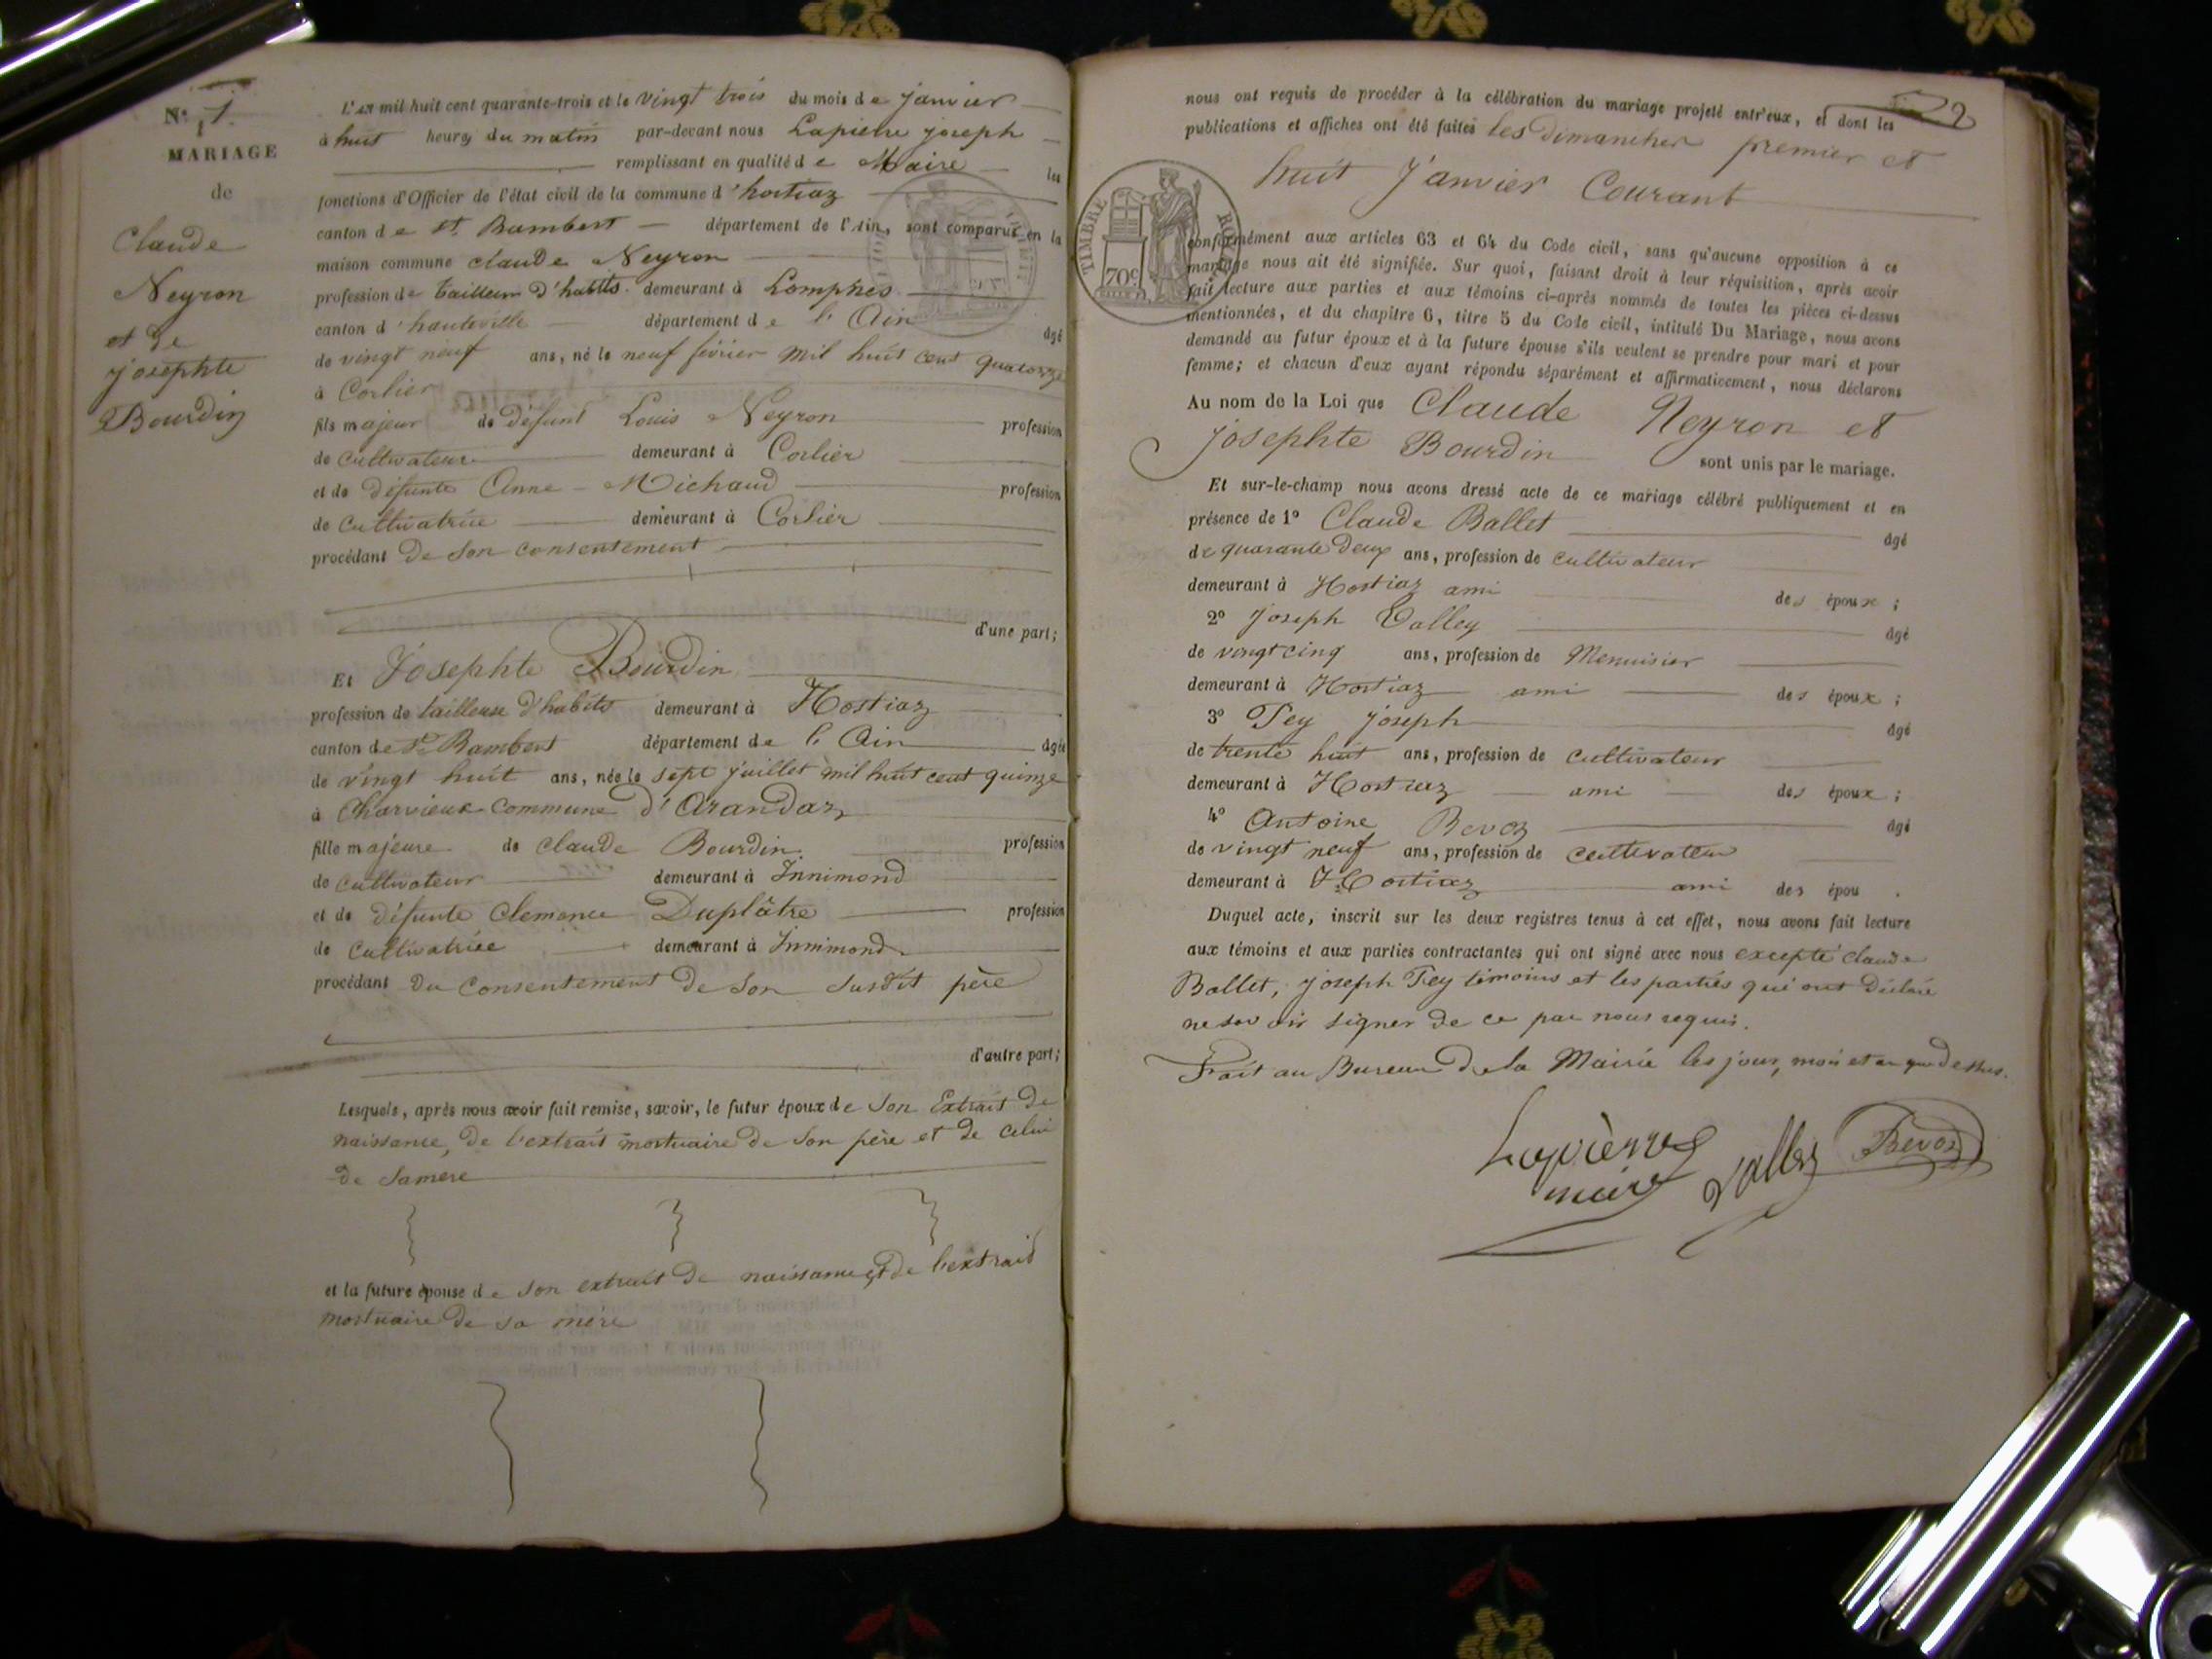 N.° 1
MARIAGE
de
Claude
Neyron
et de
josephte
Bourdin
L'an mil huit cent quarante-trois et le vingt trois du mois de janvier
à huit heures du matin par-devant nous Lapierre joseph
remplissant en qualité de Maire les
fonctions d'Officier de l'état civil de la commune d'hostiaz
canton de St Rambert département de l'Ain, sont comparus en la
maison commune claude Neyron
profession de tailleur d'habits demeurant à Lompnes
canton d'hauteville département de l'Ain âgé
de vingt neuf ans, né le neuf février mil huit cent quatorze
à Corlier
fils majeur de défunt Louis Neyron profession
de cultivateur demeurant à Corlier
et de défunte Anne Michaud profession
de cultivatrice demeurant à Corlier
procédant de son consentement
d'une part;
Et Josephte Bourdin
profession de tailleuse d'habits demeurant à Hostiaz
canton de St Rambert département de l'Ain âgée
de vingt huit ans, née le sept juillet mil huit cent quinze
à Charvieux commune d'Arandaz
fille majeure de claude Bourdin profession
de cultivateur demeurant à Innimond
et de défunte Clemence Duplâtre profession
de cultivatrice demeurant à Innimond
procédant du consentement de son susdit père
d'autre part;
Lesquels, après nous avoir fait remise, savoir, le futur époux de son Extrait de
naissance, de l'extrait mortuaire de son père et de celui
de sa mere
et la future épouse de son extrait de naissance et de l'extrait
mortuaire de sa mère
2
nous ont requis de procéder à la célébration du mariage projeté entr'eux, et dont les
publications et affiches ont été faites les dimanches premier et
huit Janvier Courant
TIMBRE ROYAL
70c
conformément aux articles 63 et 64 du Code civil, sans qu'aucune opposition à ce
mariage nous ait été signifiée. Sur quoi, faisant droit à leur réquisition, après avoir
fait lecture aux parties et aux témoins ci-après nommés de toutes les pièces ci-dessus
mentionnées, et du chapitre 6, titre 5 du Code civil, intitulé Du Mariage, nous avons
demandé au futur époux et à la future épouse s'ils veulent se prendre pour mari et pour
femme; et chacun d'eux ayant répondu séparément et affirmativement, nous déclarons
Au nom de la Loi que Claude Neyron et
josephte Bourdin sont unis par le mariage.
Et sur-le-champ nous avons dressé acte de ce mariage célébré publiquement et en
présence de 1° Claude Ballet âgé
de quarante deux ans, profession de cultivateur
demeurant à Hostiaz ami des époux;
2° joseph Valley âgé
de vingt cinq ans, profession de Menuisier
demeurant à Hostiaz ami des époux;
3° Pey joseph âgé
de trente huit ans, profession de cultivateur
demeurant à Hostiaz ami des époux;
4° Antoine Bevoz âgé
de vingt neuf ans, profession de cultivateur
demeurant à Hostiaz ami des épou.
Duquel acte, inscrit sur les deux registres tenus à cet effet, nous avons fait lecture
aux témoins et aux parties contractantes qui ont signé avec nous excepté claude
Ballet, joseph Pey témoins et les parties qui ont déclaré
ne savoir signer de ce par nous requis.
Fait au Bureau de la Mairie les jour, mois et an que dessus.
Lapièrre Valley Bevoz
maire